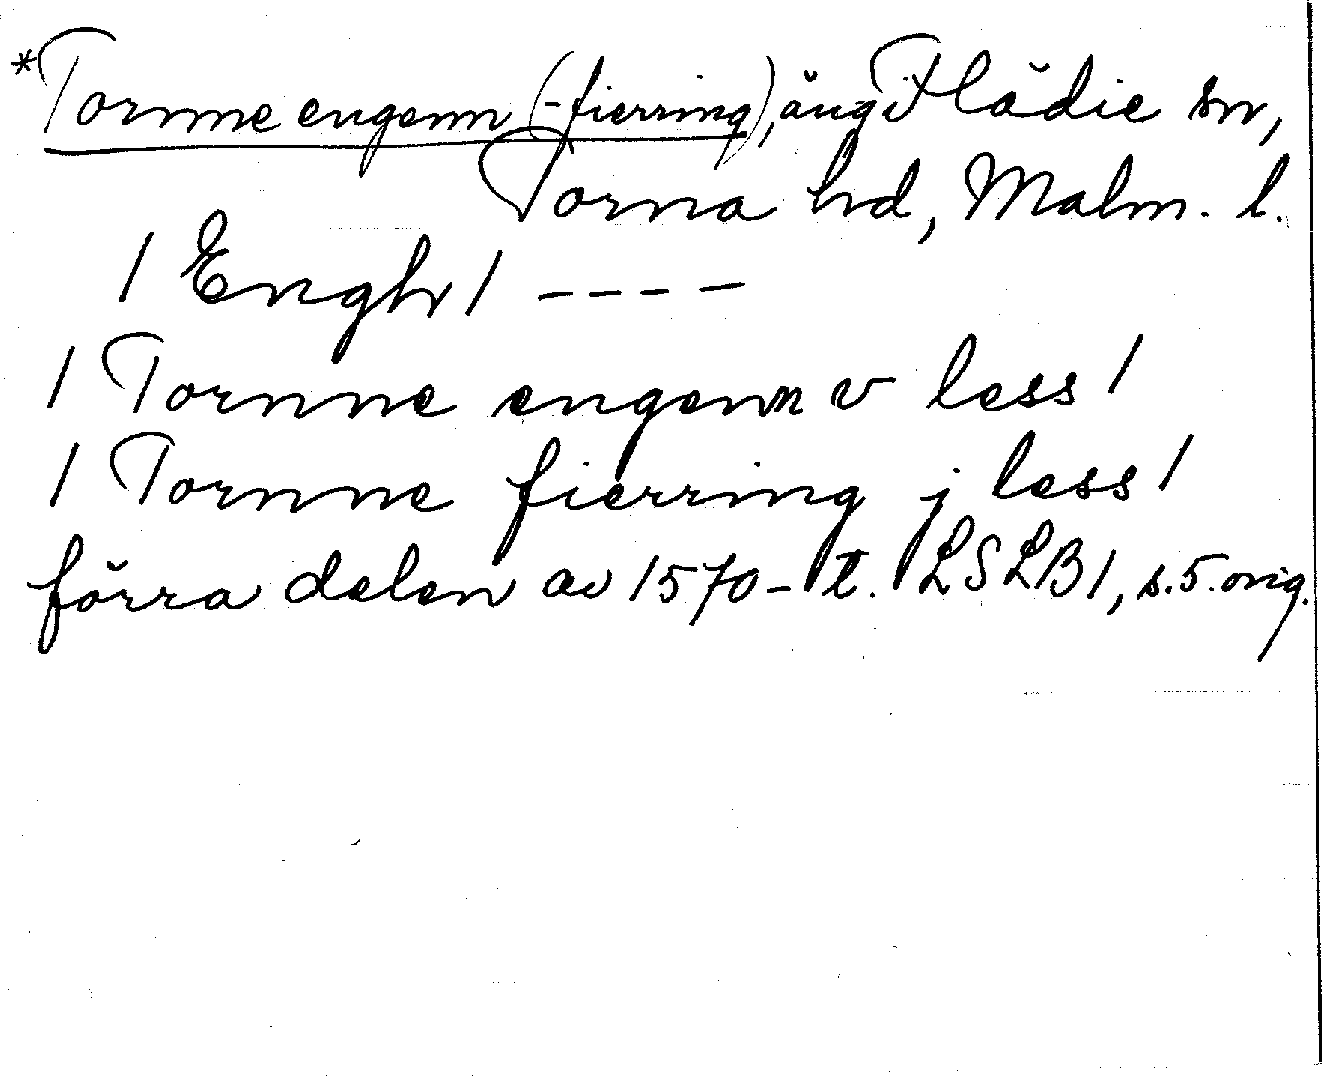 *Tornne engenn (-fierring), äng i Flädie sn,
Torna hd, Malm. l.
/ Engh / - - - -
/ Tornne engenn v less /
/ Tornne fierring j less /
förra delen av 1570-t. LSLB 1, s. 5. orig.